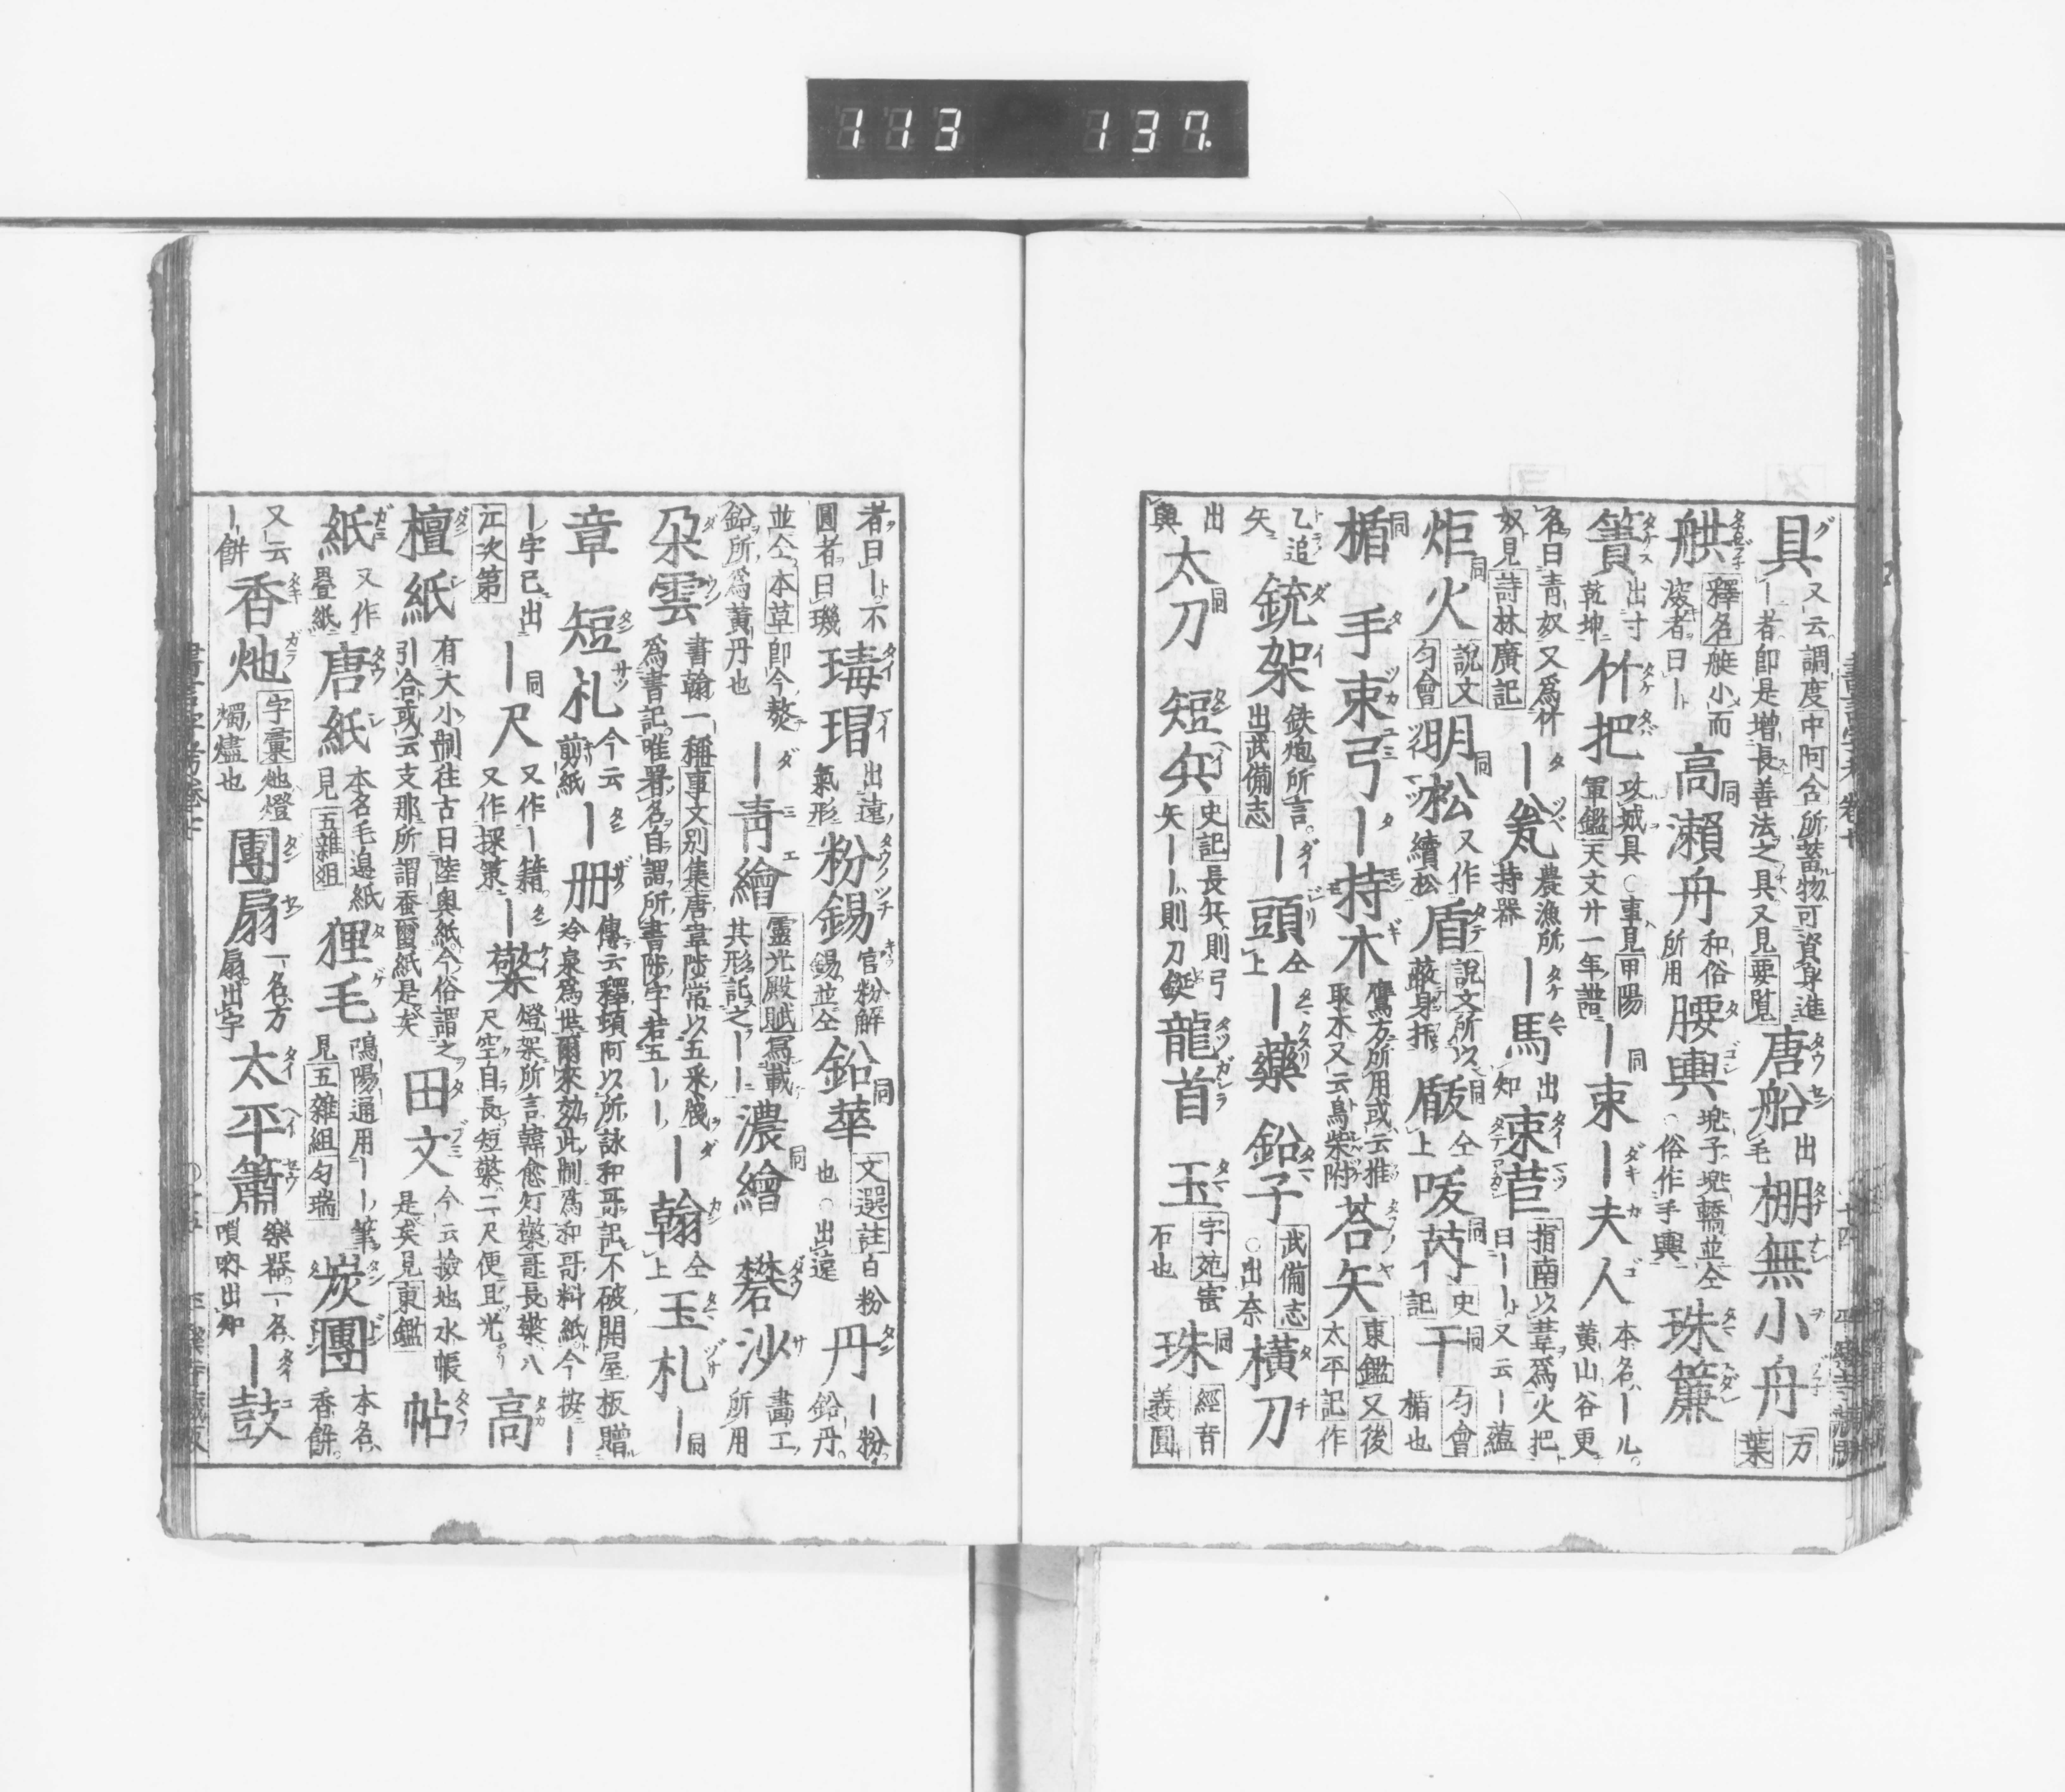 113 137.
具 又云調度中阿含所蓄物可資身進｜者即是增長善法之具又見要覧 唐船 出毛 棚無小舟 万葉
舼 釋名艇小而深者曰｜ 高瀬舟 和俗所用 腰輿 兠子兠轎並仝○俗作手輿 珠簾
簀 出寸乾坤 竹把 攻城具○事見甲陽軍鑑天文廾一年譜 ｜束 同 ｜夫人 本名｜儿黄山谷更
名曰青奴又爲竹奴見詩林廣記 ｜瓮 農漁所持器 ｜馬 出知 束苣 指南以葦爲火把曰｜｜又云｜藴
炬火 同 説文匀會 明松 同 又作續松 盾 説文所以蔽身扞 瞂 同仝上 㕹芮 同史記 干 同匀會楯也
楯 同 手束弓 ｜持木 鷹方所用或云推取木又云鳥柴附 荅矢 東鑑又後太平記作
乙追矢 銃架 鉄炮所言出武備志 ｜頭 仝上 ｜藥 鉛子 武備志○出奈 橫刀
出輿 太刀 同 短兵 史記長兵則弓矢｜｜則刀鋋 龍首 玉 字苑宝石也 珠 同經音義圓
者曰｜不圓者曰璣 瑇瑁 出遠氣形 粉錫 官粉解錫並仝 鉛華 同文選註白粉也○出遠 丹 ｜粉鉛丹
並仝本草即今熬鉛所爲黄丹也 ｜青繪 靈光殿賦寫載其形託之｜｜ 濃繪 同 礬沙 畵工所用
朶雲 書翰一稱事文别集唐韋陟常以五采牋爲書記唯署名自謂所書陟字若五｜｜ ｜翰 仝上 玉札 ｜同
章 短札 今云剪紙 ｜册 傳云釋頓阿以所詠和哥記不破關屋板贈冷泉爲世爾來効此制為和哥料紙今按｜
｜字已出江次第 ｜同 尺 又作｜籍又作探策 ｜檠 燈架所言韓愈灯檠哥長檠八尺空自長短檠二尺便且光 高
檀紙 有大小制往古曰陸奥紙今俗謂之引合或云支那所謂蚕蠒紙是矣 田文 今云撿地水帳是矣見東鑑 帖
紙 又作疊紙 唐紙 本名毛邉紙見五雜俎 狸毛 鳴陽通用｜｜筆見五雜組匀瑞 炭團 本名香餅
又云｜餅 香灺 字彙灺燈燭燼也 團扇 一名方扇出宇 太平簫 樂器一名嗩㖠出知 ｜鼓